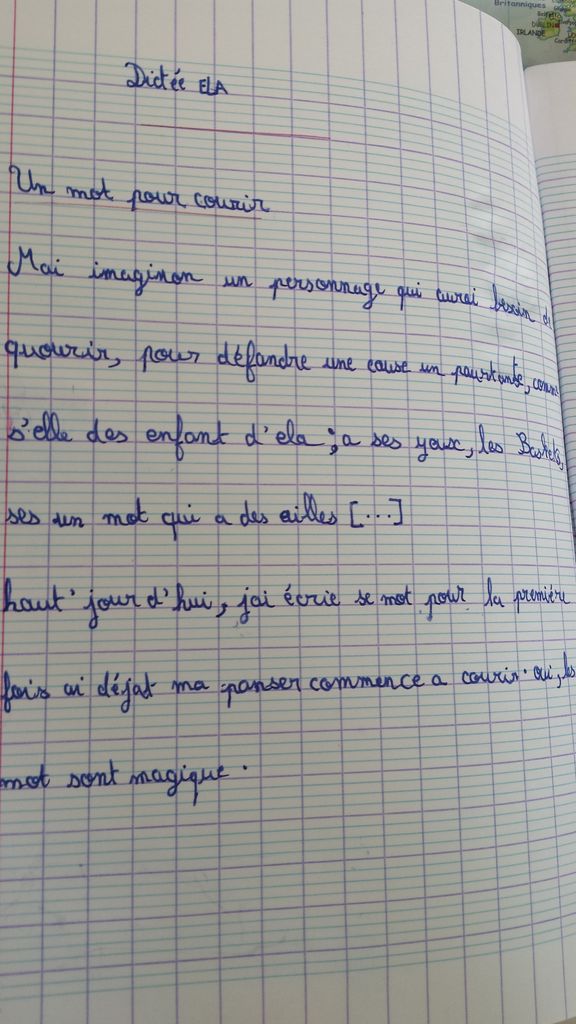 Britanniques
DUBLIN
IRLANDE
Dictée ELA
Un mot pour courir
Mai imaginon un personnage qui aurai besoin de
quourir, pour défandre une cause un pourtante, comme
s'elle des enfant d'ela ; a ses yeux, les Baskets,
ses un mot qui a des ailles [...]
haut' jour d'hui, jai écrie se mot pour la première
fois ai déjat ma panser commence a courir. oui, les
mot sont magique.